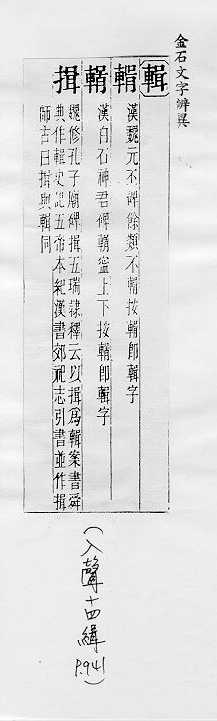 金石文字辨異
輯
漢魏元丕碑餘類不按卽輯字
漢白石神君碑上下按卽輯字
揖
魏修孔子廟碑揖五瑞隸釋云以揖爲輯案書舜
典作輯史記五帝本紀漢書郊祀志引書並作揖
師古曰揖與輯同
(入聲十四緝
P.941)